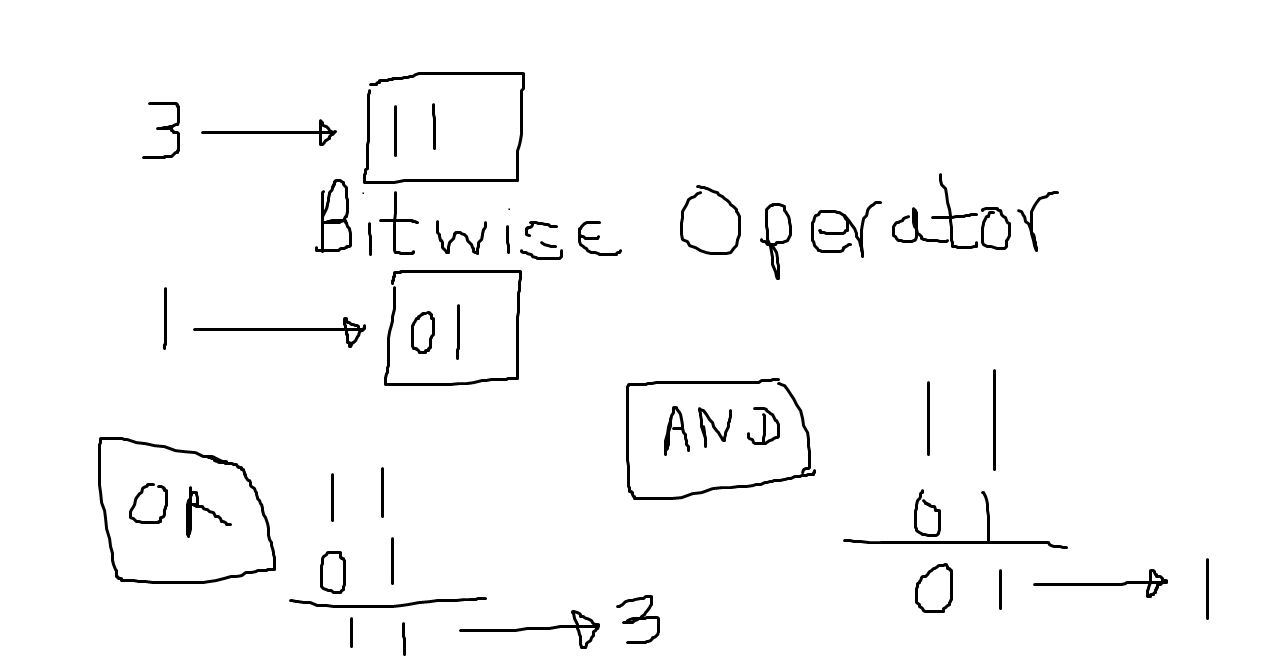 3 → 11
Bitwise Operator
1 → 01
OR
11
01
11 → 3
AND
11
01
01 → 1